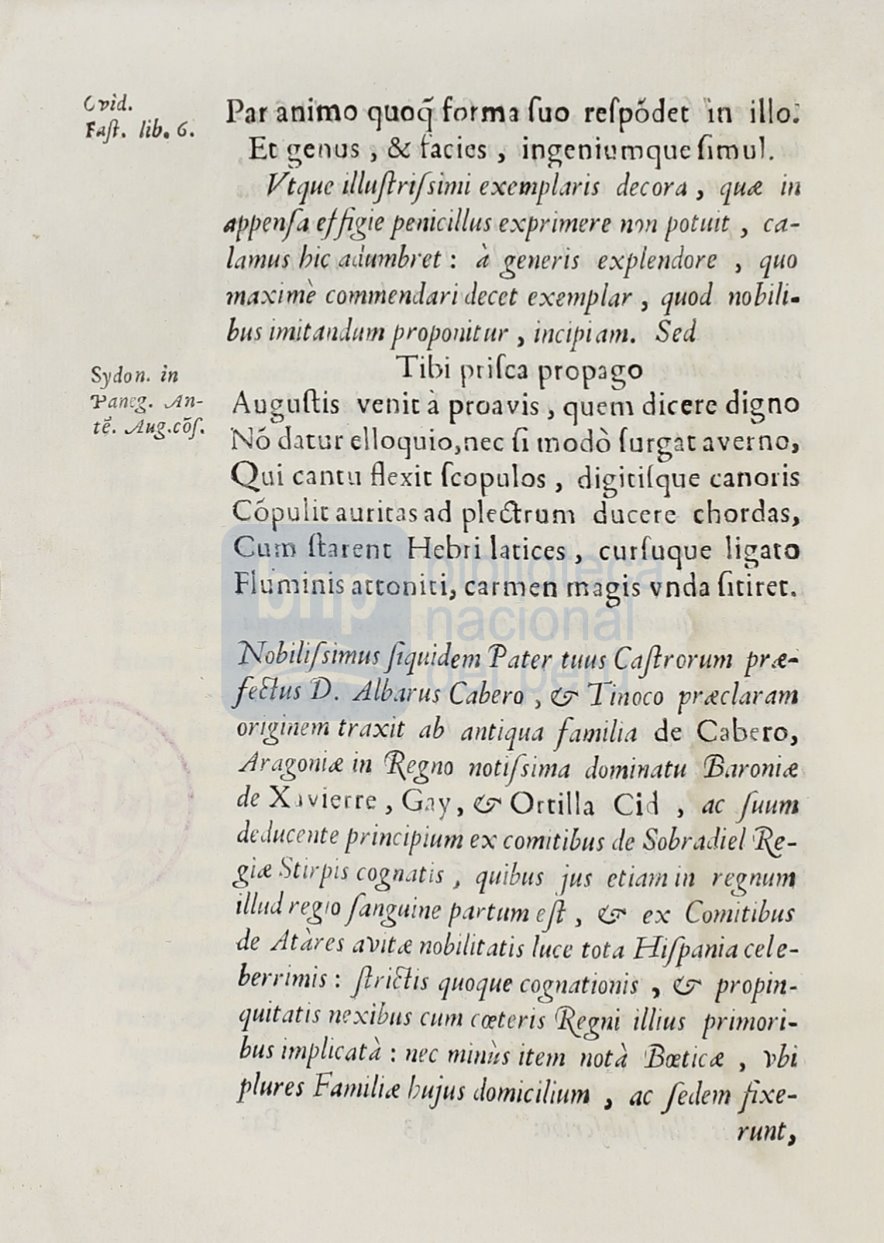 Ovid.
Fast. lib. 6.
Par animo quoq̃ forma ſuo reſpõdet in illo:
Et genus, & facies, ingeniumque ſimul.
Vtque illuſtriſsimi exemplaris decora, quæ in
appenſa effigie penicillus exprimere non potuit, ca-
lamus hic adumbret: à generis explendore, quo
maximè commendari decet exemplar, quod nobili-
bus imitandum proponitur, incipiam. Sed
Sydon. in
Paneg. An-
tẽ. Aug.cõſ.
Tibi priſca propago
Auguſtis venit à proavis, quem dicere digno
Nõ datur elloquio, nec ſi modò ſurgat averno,
Qui cantu flexit ſcopulos, digitiſque canoris
Cõpulit auritas ad plectrum ducere chordas,
Cum ſtarent Hebri latices, curſuque ligato
Fluminis attoniti, carmen magis vnda ſitiret.
Nobiliſsimus ſiquidem Pater tuus Caſtrorum præ-
fectus D. Albarus Cabero, & Tinoco præclaram
originem traxit ab antiqua familia de Cabero,
Aragoniæ in Regno notiſsima dominatu Baroniæ
de Xavierre, Gay, & Ortilla Cid, ac ſuum
deducente principium ex comitibus de Sobradiel Re-
giæ Stirpis cognatis, quibus jus etiam in regnum
illud regio ſanguine partum eſt, & ex Comitibus
de Atàres avitæ nobilitatis luce tota Hiſpania cele-
berrimis: ſtrictis quoque cognationis, & propin-
quitatis nexibus cum cœteris Regni illius primori-
bus implicatà: nec minùs item notà Bœticæ, vbi
plures Familiæ hujus domicilium, ac ſedem fixe-
runt,
bnp
biblioteca
nacional
del perú